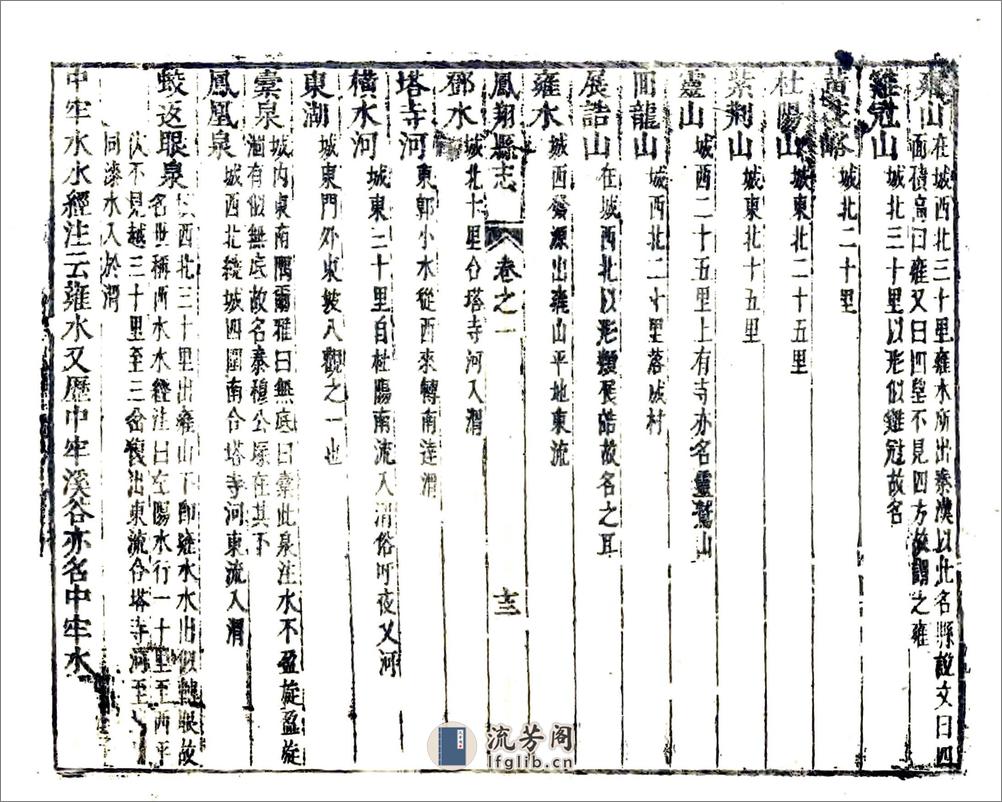 雍山在城西北三十里雍水所出秦漢以此名縣說文曰四
面積高曰雍又曰四望不見四方故謂之雍
雞冠山城北三十里以形似雞冠故名
城北二十里
杜陽山城東北二十五里
紫荆山城東北十五里
靈山城西二十五里上有寺亦名靈鷲山
回龍山城西北二十里落城村
展誥山在城西北以形類展誥故名之耳
雍水城西發源出雍山平地東流
鳳翔縣志 卷之一 十三
鄧水城北十里合塔寺河入渭
塔寺河東郭小水從西來轉南達渭
橫水河城東二十里自杜陽南流入渭俗呼夜叉河
東湖城東門外東坡八觀之一也
橐泉城內東南隅爾雅曰無底曰橐此泉注水不盈旋盈旋
涸有似無底故名秦穆公塚在其下
鳳凰泉城西北繞城四圍南合塔寺河東流入渭
蛟返眼泉城西北三十里出雍山下即雍水水出似轉眼故
名世稱西水水經注曰左陽水行一十里至西平
伏不見越三十里至三岔復出東流合塔寺河至
同漆水入於渭
中牢水水經注云雍水又歷中牢溪谷亦名中牢水
流芳阁
lfglib.cn